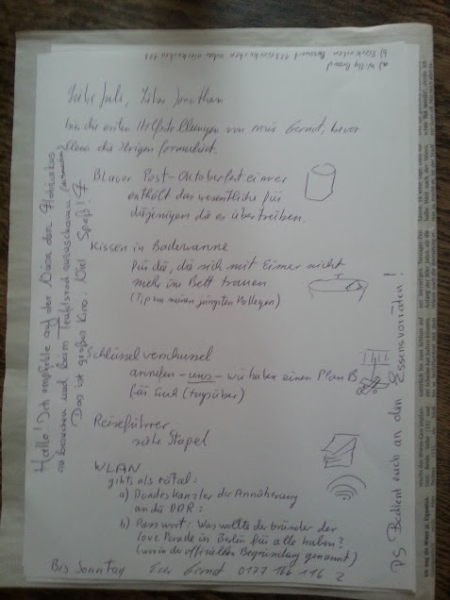 Liebe Juli, Lieber Jonathan
hier die ersten Hilfestellungen von mir Gernot, bevor
Elena die ihrigen formuliert.
Blauer Post-Oktoberfesteimer
enthält das wesentliche für
diejenigen die es übertreiben.
Kissen in Badewanne
für die, die sich mit Eimer nicht
mehr ins Bett trauen
(Tip von meinen jüngsten Kollegen)
Schlüssel verschusselt
anrufen - uns - wir haben einen Plan B
für Euch (tagsüber)
Reiseführer
siehe Stapel
WLAN
gibts als Rätsel:
a) Bundeskanzler der Annäherung
an die DDR:
b) Passwort: Was wollte der Gründer der
Love Parade in Berlin für alle haben?
(wie in der offiziellen Begründung genannt)
Bis Sonntag Euer Gernot 0177 166 116 2
Hallo! Ich empfehle auf der Wiese den
zu besuchen und beim zuschauen
Das ist großes Kino. Viel Spaß!
PS Bedient euch an den Essensvorräten!
a) Willy Brand
b)